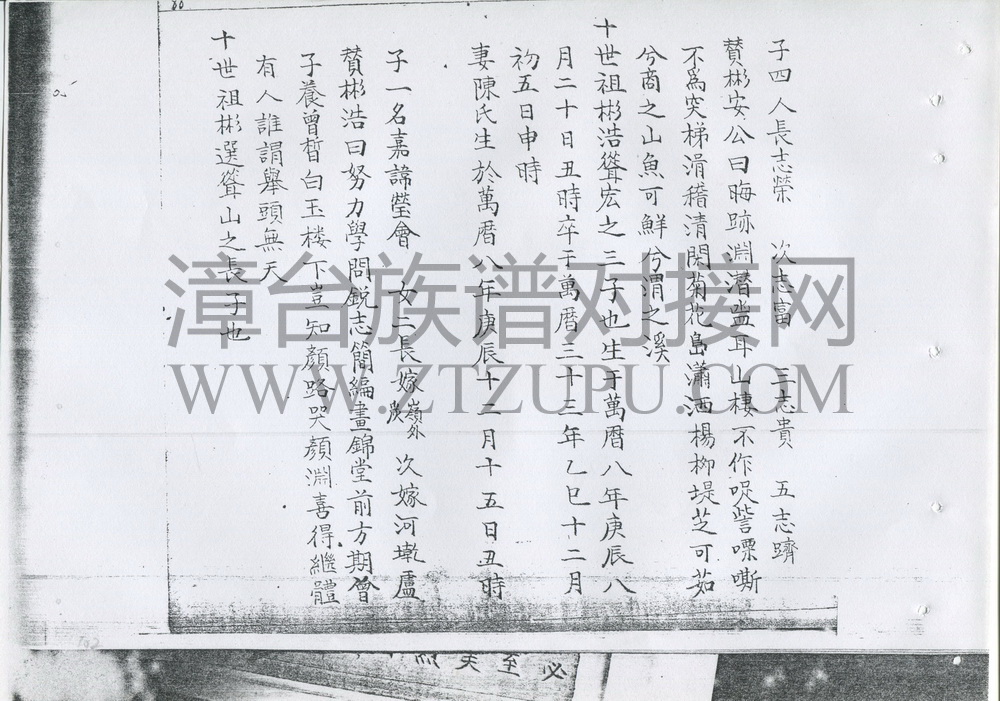 子四人長志榮　次志富　三志貴　五志躋
賛彬安公曰晦跡淵潛盥耳山棲不作哫訾嘌嘶
不爲突梯滑稽清閑菊花島瀟洒楊柳堤芝可茹
兮商之山魚可鮮兮渭之溪
十世祖彬浩聳宏之三子也生于萬曆八年庚辰八
月二十日丑時卒于萬曆三十三年乙巳十二月
初五日申時
妻陳氏生於萬曆八年庚辰十二月十五日丑時
子一名嘉諱瑩會　女二長嫁嶺外 次嫁河墘盧
賛彬浩曰努力學問銳志簡編晝錦堂前方期曾
子養曾晳白玉楼下豈知顔路哭顏淵喜得繼體
有人誰謂舉頭無天
十世祖彬選聳山之長子也
漳台族谱对接网
WWW.ZTZUPU.COM
必至美